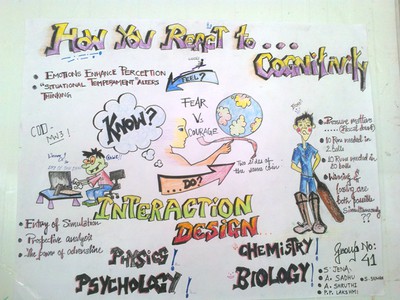 HOW YOU REACT to ....
COGNITIVITY
• EMOTIONS ENHANCE PERCEPTION
• "SITUATIONAL TEMPERAMENT" ALTERS
THINKING
FEEL?
FEAR
V.
COURAGE
KNOW?
COD-
MW3!
... DO?
Two sides of
the same coin
• Pressure matters
• 10 Runs needed in
2 balls
• 10 Runs needed in
20 balls
• Winning &
losing are
both possible
??
INTERACTION
DESIGN
• Entry of Simulation
• Prospective analysis
• The power of adrenaline
PHYSICS!
PSYCHOLOGY!
CHEMISTRY!
BIOLOGY!
Group No:
41
• S. JENA
• A. SADHU
• A. SHRUTHI
• P.P. LAKSHMI